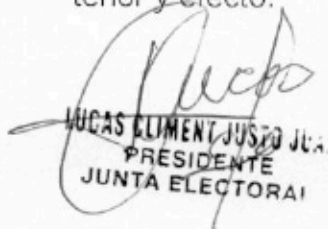 tenor y efecto.
LUCAS CLIMENT JUSTO JUA
PRESIDENTE
JUNTA ELECTORAL